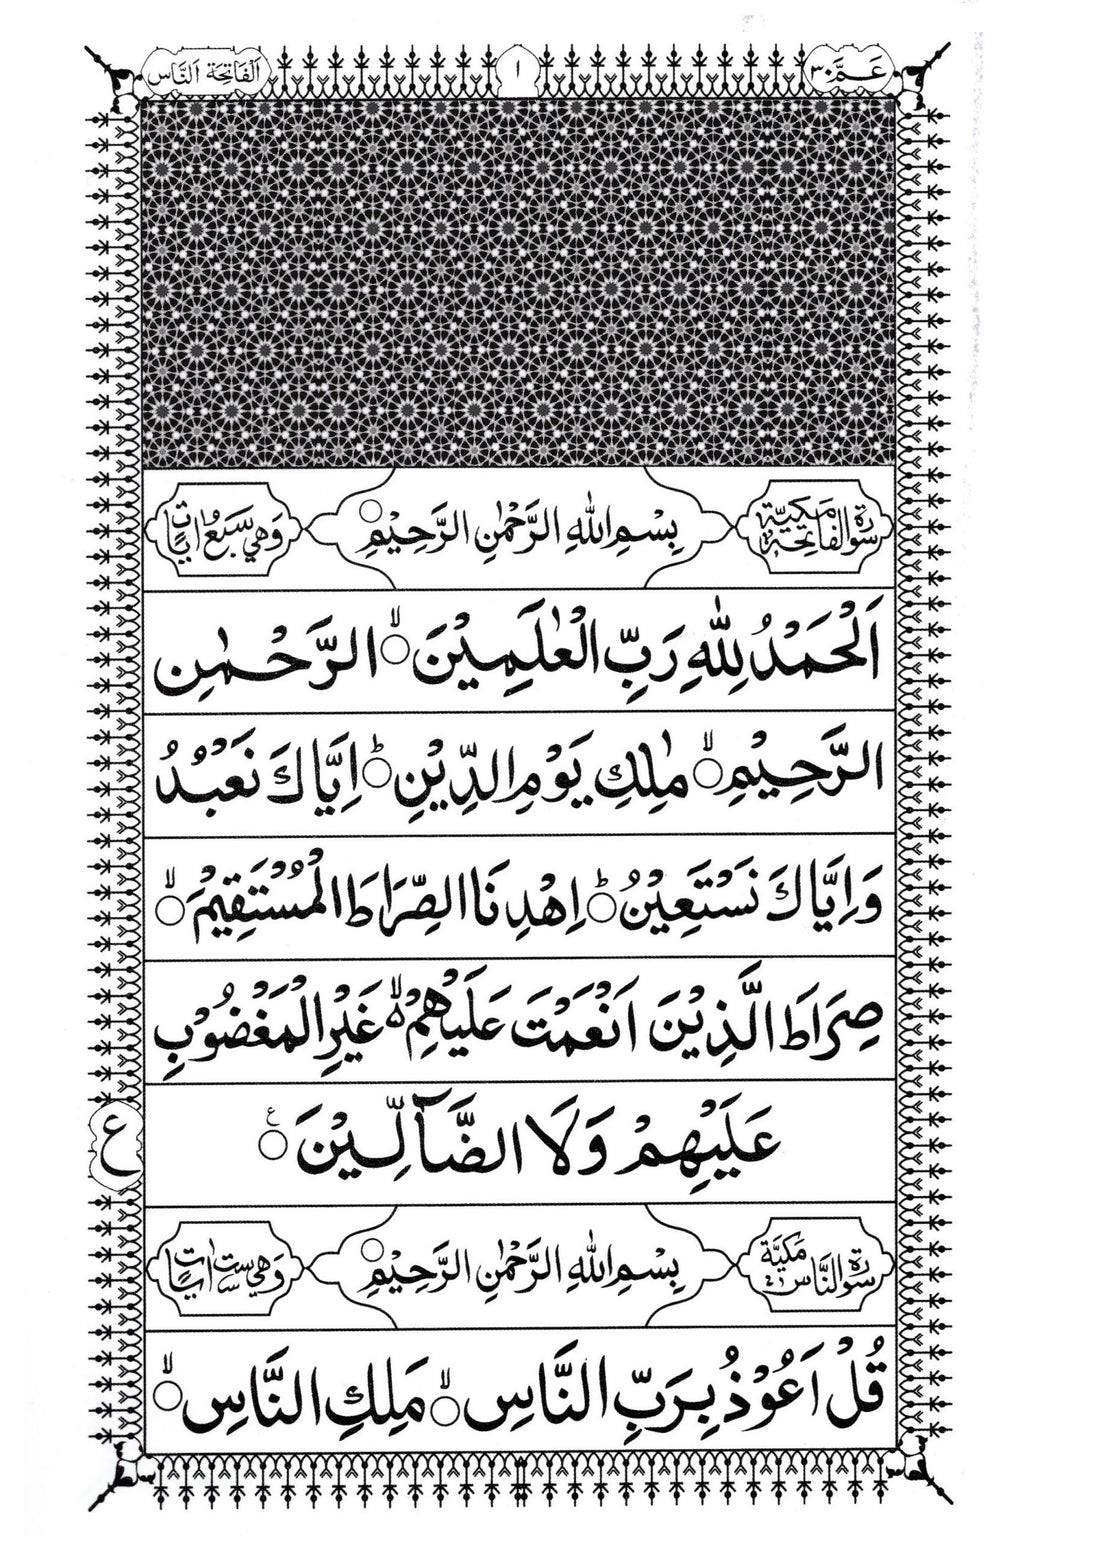 عَمَّ ٣٠ ١ اَلْفَاتِحَة اَلنَّاس
سُوْرَةُ الْفَاتِحَةِ مَكِّيَّةٌ بِسْمِ اللّٰهِ الرَّحْمٰنِ الرَّحِيْمِ۝ وَهِيَ سَبْعُ اٰيَاتٍ
اَلْحَمْدُ لِلّٰهِ رَبِّ الْعٰلَمِيْنَ۝ۙ الرَّحْمٰنِ
الرَّحِيْمِ۝ۙ مٰلِكِ يَوْمِ الدِّيْنِ۝ؕ اِيَّاكَ نَعْبُدُ
وَاِيَّاكَ نَسْتَعِيْنُ۝ؕ اِهْدِنَا الصِّرَاطَ الْمُسْتَقِيْمَ۝ۙ
صِرَاطَ الَّذِيْنَ اَنْعَمْتَ عَلَيْهِمْ ۙ۵ غَيْرِ الْمَغْضُوْبِ
عَلَيْهِمْ وَلَا الضَّآلِّيْنَ۝ ع
ع
سُوْرَةُ النَّاسِ مَكِّيَّةٌ بِسْمِ اللّٰهِ الرَّحْمٰنِ الرَّحِيْمِ۝ وَهِيَ سِتُّ اٰيَاتٍ
قُلْ اَعُوْذُ بِرَبِّ النَّاسِ۝ۙ مَلِكِ النَّاسِ۝ۙ